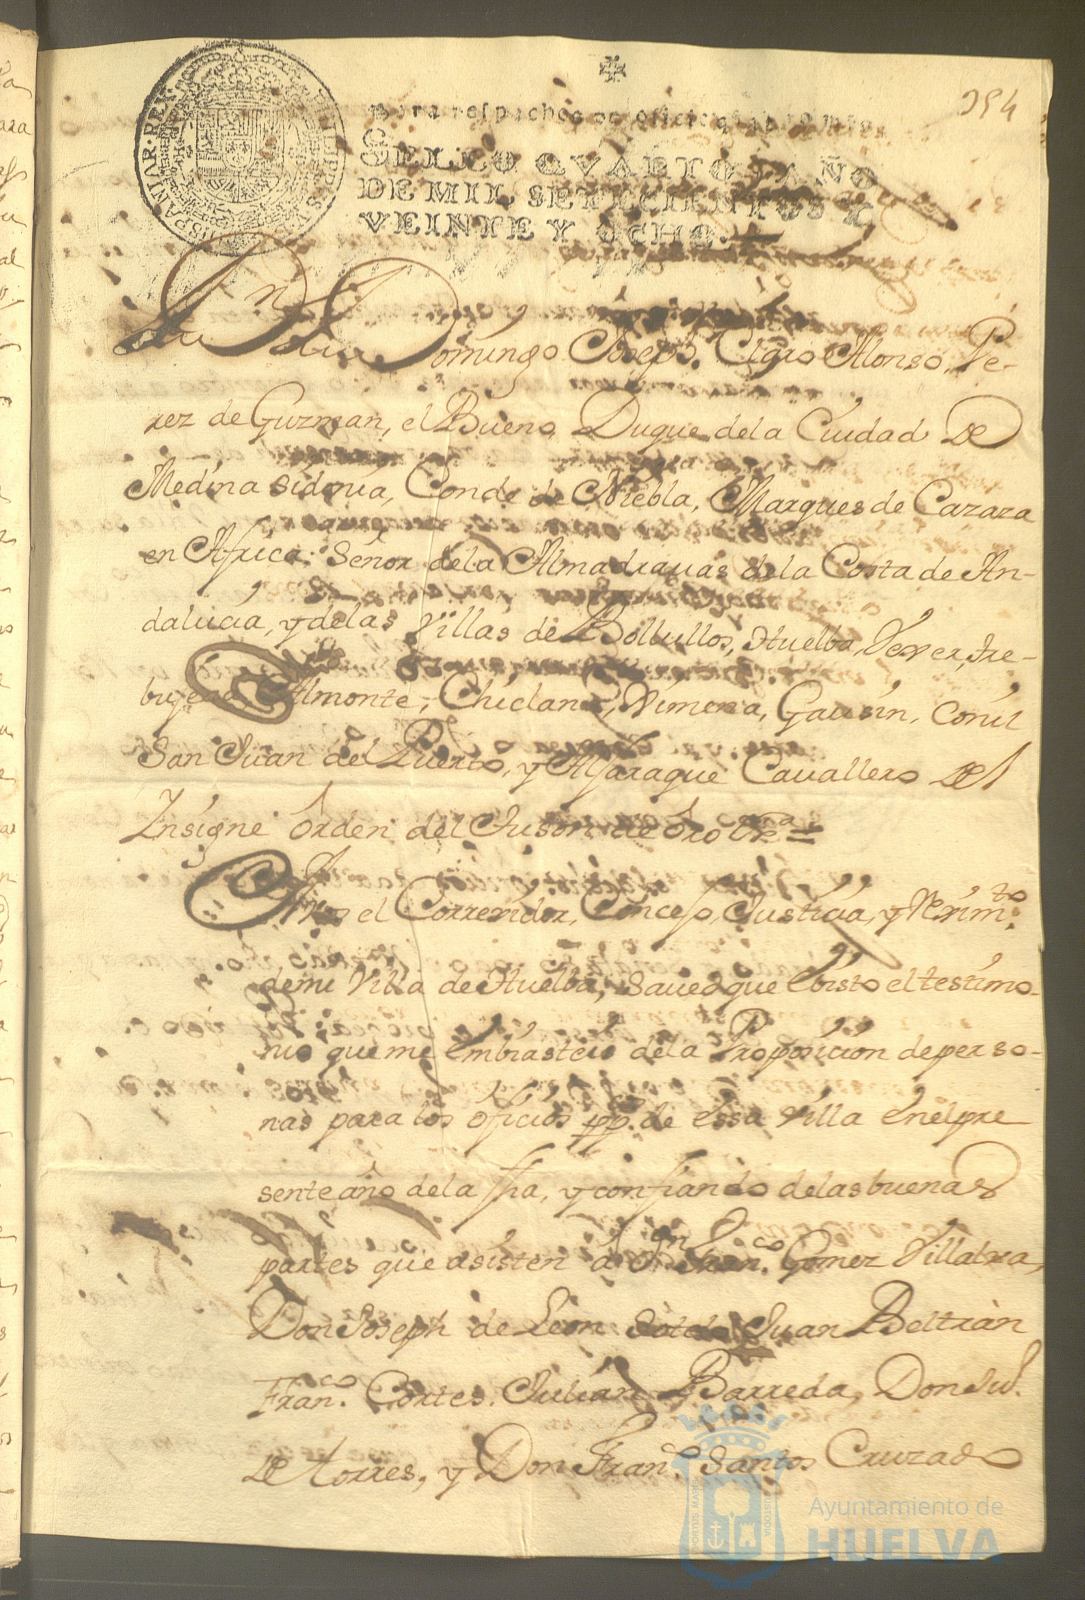 394
Para despachos de oficio
SELLO QVARTO, AÑO
DE MIL SETECIENTOS Y
VEINTE Y OCHO.
HISPANIAR·REX
Dn Domingo Joseph. Claro Alonso, Pe-
rez de Guzman, el Bueno, Duque dela Ciudad De
Medina Sidonia, Conde de Niebla, Marques de Cazaza
en Africa. Señor dela Almadrauas dela Costa de An-
dalucia, y delas Villas de Bollullos, Huelba, Vexer, Tre-
bujena, Almonte, Chiclana, Ximena, Gausin, Conil
San Juan del Puerto, y Aljaraque Cavallero Del
Insigne orden del Tuson de oro Vra =
A vos el Correxidor, Concejo, Justicia, y Reximto
de mi Villa de Huelba, Saued que e bisto el testimo-
nio que me embiasteis dela Proposicion de perso-
nas para los oficios pp. de essa Villa en el pre
sente año dela fha, y confiando delas buenas
partes que asisten a Dn Franco. Gomez Villalva,
Don Joseph de Leon Juan Beltran
Franco. Cortes. Julian Barreda, Don Ju.
De torres, y Don Franco. Santos Cruzado
Ayuntamiento de
HUELVA